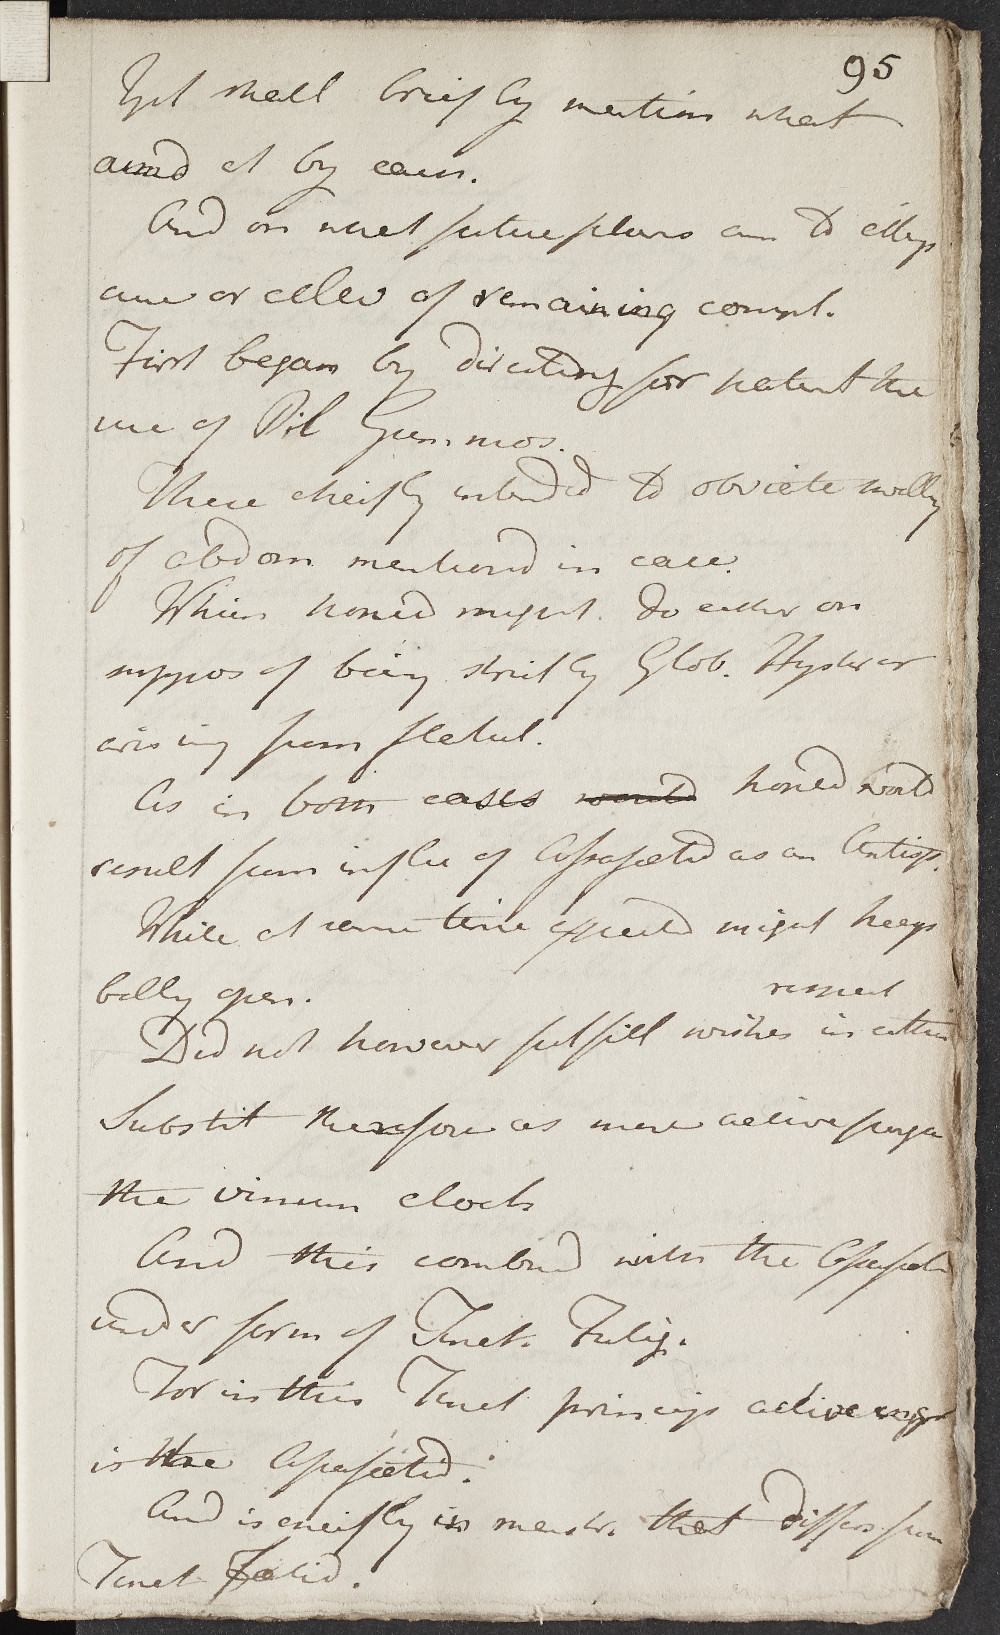 95
Yet shall briefly mention what
aimd at by each.
And on what future plans am to attempt
cure or allev of remaining compl.
First began by directing for patient the
use of Pil Gummos.
These cheifly intended to obviate swelling
of abdom mentiond in case.
Which hoped might do either on
suppos of being strictly Glob. Hyster or
arising from flatul.
As in both cases hoped would
result from influ of Assafoetid as an Antisp.
While at same time expected might keep
belly open.
respect
Did not however fulfill wishes in either
Substit therefore as more active purga
the vinum aloet
And this combind with the Assafoetid
under form of Tinct. Fulig.
For in this Tinct princip active ingr
is the Assafoetid.
And is cheifly in menstr. that differs from
Tinct Foetid.